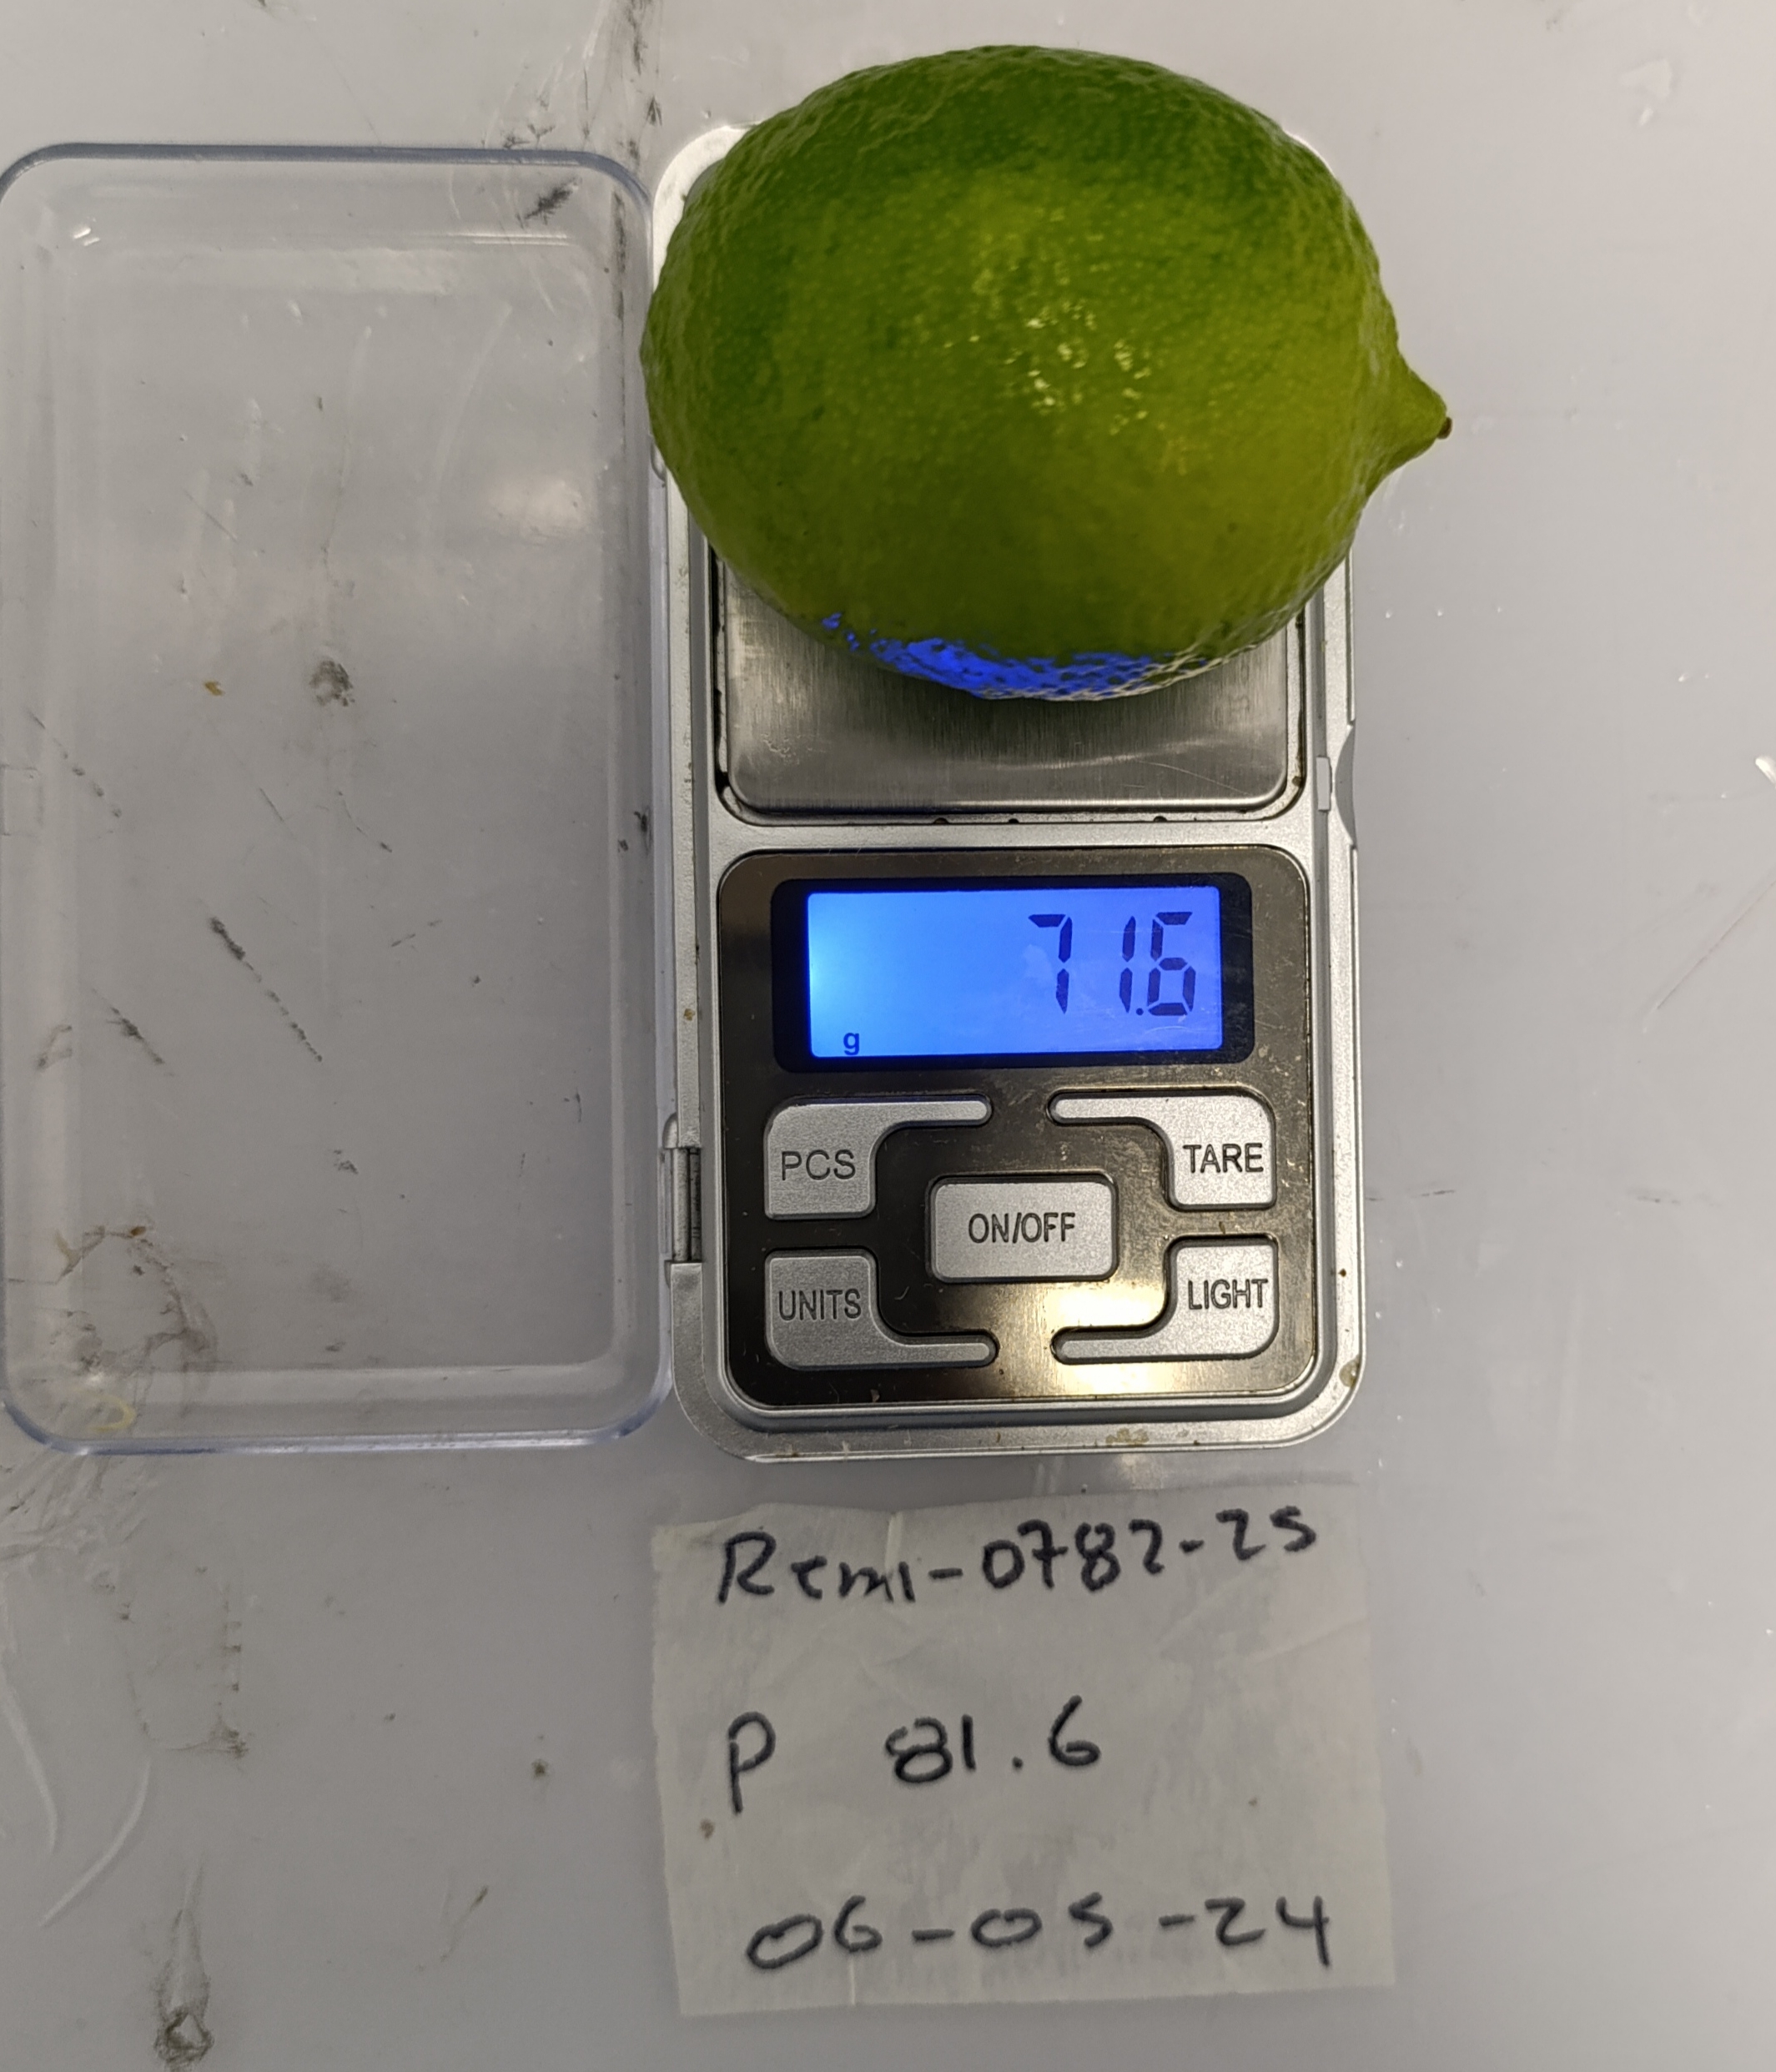 71.6
g
PCS
TARE
ON/OFF
UNITS
LIGHT
Remi-0782-25
P 81.6
06-05-24